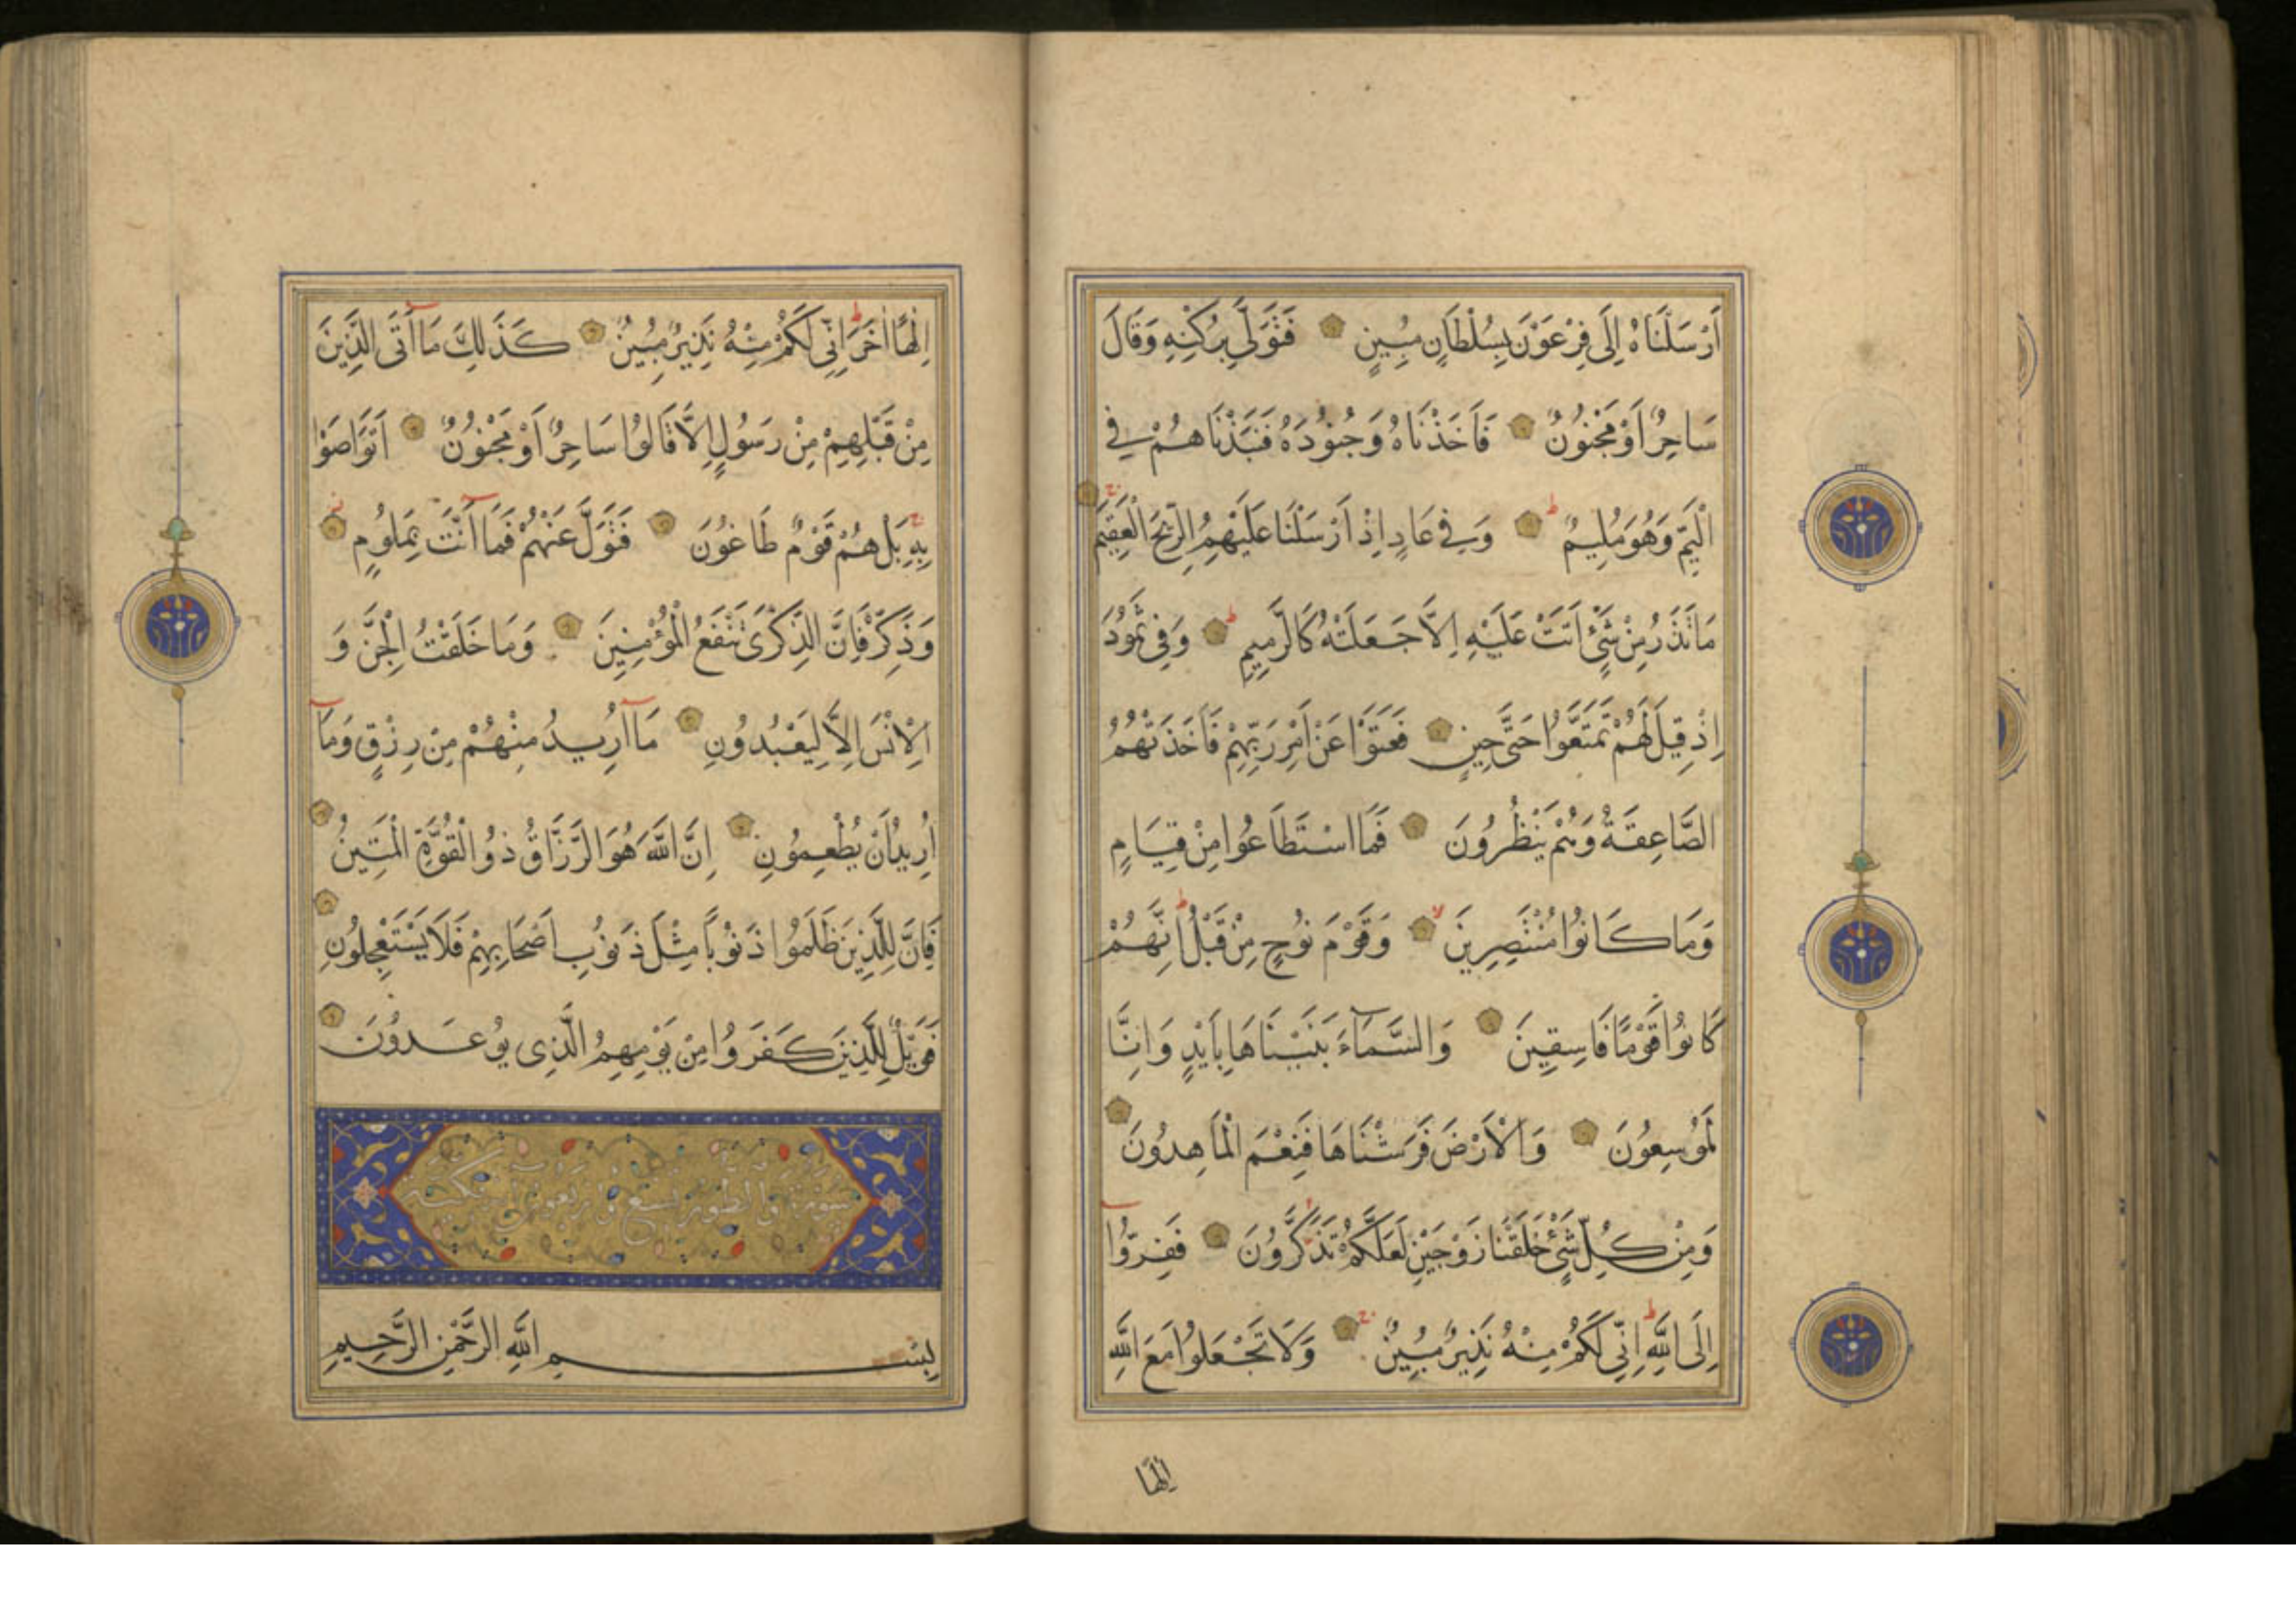 اَرْسَلْنَاهُ اِلَى فِرْعَوْنَ بِسُلْطَانٍ مُبِينٍ فَتَوَلَّى بِرُكْنِهِ وَقَالَ
سَاحِرٌ اَوْ مَجْنُونٌ فَاَخَذْنَاهُ وَجُنُودَهُ فَنَبَذْنَاهُمْ فِي
الْيَمِّ وَهُوَ مُلِيمٌ وَفِي عَادٍ اِذْ اَرْسَلْنَا عَلَيْهِمُ الرِّيحَ الْعَقِيمَ
مَا تَذَرُ مِنْ شَيْئٍ اَتَتْ عَلَيْهِ اِلَّا جَعَلَتْهُ كَالرَّمِيمِ وَفِي ثَمُودَ
اِذْ قِيلَ لَهُمْ تَمَتَّعُوا حَتَّى حِينٍ فَعَتَوْا عَنْ اَمْرِ رَبِّهِمْ فَاَخَذَتْهُمُ
الصَّاعِقَةُ وَهُمْ يَنْظُرُونَ فَمَا اسْتَطَاعُوا مِنْ قِيَامٍ
وَمَا كَانُوا مُنْتَصِرِينَ وَقَوْمَ نُوحٍ مِنْ قَبْلُ اِنَّهُمْ
كَانُوا قَوْمًا فَاسِقِينَ وَالسَّمَآءَ بَنَيْنَاهَا بِاَيْدٍ وَاِنَّا
لَمُوسِعُونَ وَالْاَرْضَ فَرَشْنَاهَا فَنِعْمَ الْمَاهِدُونَ
وَمِنْ كُلِّ شَيْئٍ خَلَقْنَا زَوْجَيْنِ لَعَلَّكُمْ تَذَكَّرُونَ فَفِرُّوا
اِلَى اللَّهِ اِنِّي لَكُمْ مِنْهُ نَذِيرٌ مُبِينٌ وَلَا تَجْعَلُوا مَعَ اللَّهِ
اِلٰهًا
اِلٰهًا اٰخَرَ اِنِّي لَكُمْ مِنْهُ نَذِيرٌ مُبِينٌ كَذَلِكَ مَا اَتَى الَّذِينَ
مِنْ قَبْلِهِمْ مِنْ رَسُولٍ اِلَّا قَالُوا سَاحِرٌ اَوْ مَجْنُونٌ اَتَوَاصَوْا
بِهِ بَلْ هُمْ قَوْمٌ طَاغُونَ فَتَوَلَّ عَنْهُمْ فَمَا اَنْتَ بِمَلُومٍ
وَذَكِّرْ فَاِنَّ الذِّكْرَى تَنْفَعُ الْمُؤْمِنِينَ وَمَا خَلَقْتُ الْجِنَّ وَ
الْاِنْسَ اِلَّا لِيَعْبُدُونِ مَا اُرِيدُ مِنْهُمْ مِنْ رِزْقٍ وَمَآ
اُرِيدُ اَنْ يُطْعِمُونِ اِنَّ اللَّهَ هُوَ الرَّزَّاقُ ذُو الْقُوَّةِ الْمَتِينُ
فَاِنَّ لِلَّذِينَ ظَلَمُوا ذَنُوبًا مِثْلَ ذَنُوبِ اَصْحَابِهِمْ فَلَا يَسْتَعْجِلُونِ
فَوَيْلٌ لِلَّذِينَ كَفَرُوا مِنْ يَوْمِهِمُ الَّذِي يُوعَدُونَ
سورة والطور تسع و اربعون آية مكية
بِسْمِ اللَّهِ الرَّحْمٰنِ الرَّحِيمِ